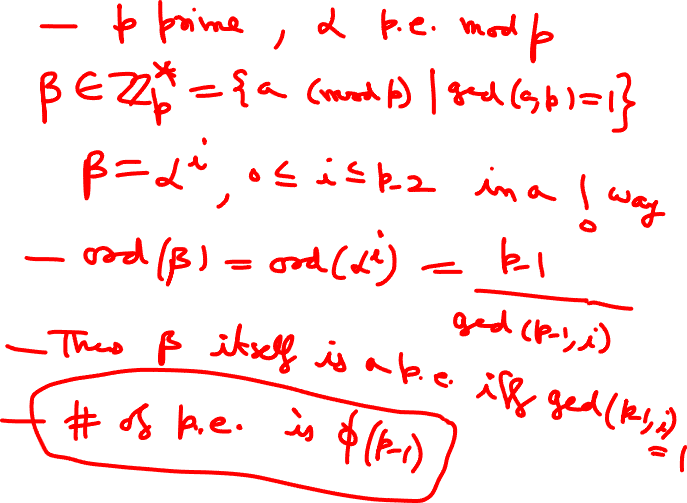 — p prime, α p.e. mod p
β ∈ ℤ*_p = {a (mod p) | gcd(a,p)=1}
β = α^i, 0 ≤ i ≤ p-2 in a ! way
— ord(β) = ord(α^i) = p-1 / gcd(p-1,i)
— Thus β itself is a p.e. iff gcd(p-1,i) = 1
— # of p.e. is ϕ(p-1)